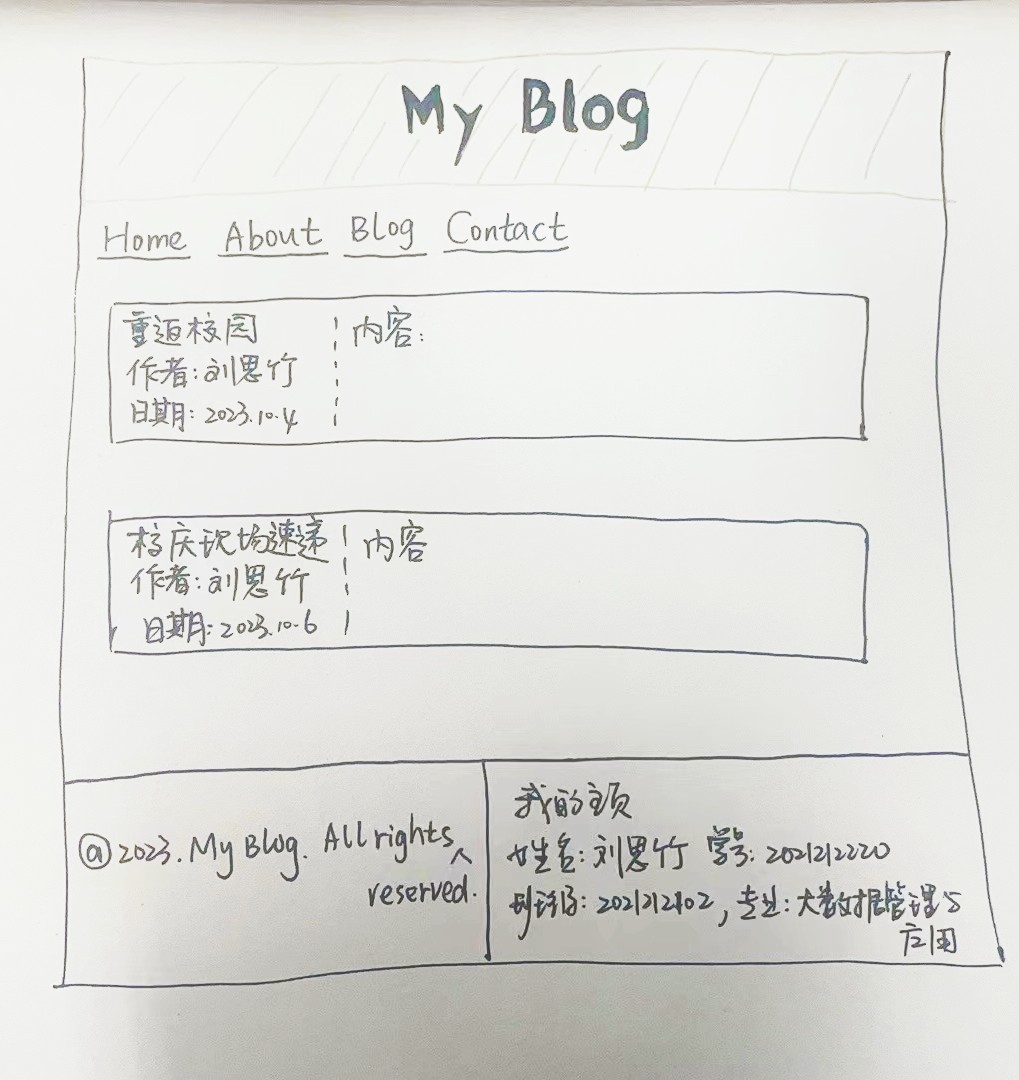 My Blog
Home About Blog Contact
重返校园
作者:刘思竹
日期:2023.10.4
内容:
校庆现场速递
作者:刘思竹
日期:2023.10.6
内容
@2023. My Blog. All rights
reserved.
我的主页
姓名:刘思竹 学号:2021212220
班级:2021212102,专业:大数据管理与
应用